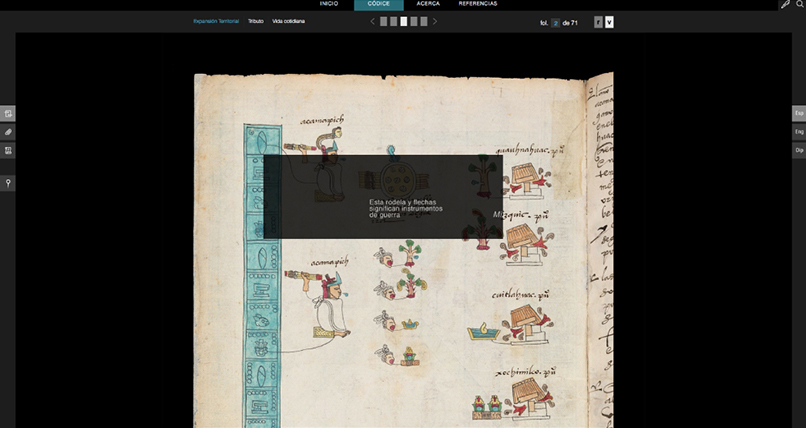 INICIO CÓDICE ACERCA REFERENCIAS
Expansión Territorial Tributo Vida cotidiana
fol. 2 de 71 r v
Esp
Eng
acamapich
quauhnahuac. pũ
Esta rodela y flechas
significan instrumentos
de guerra
Mizquic. pũ
acamapich
cuitlahuac. pũ
xochimilco. pũ